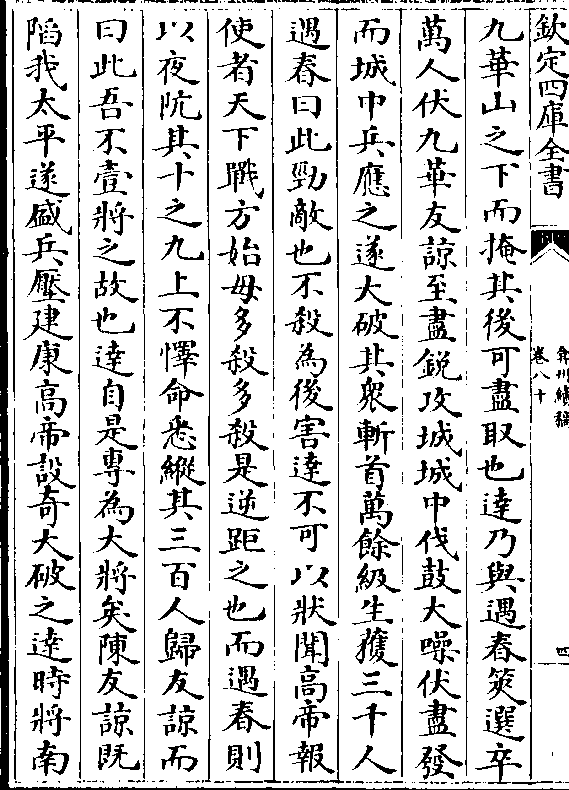 欽定四庫全書
弇州續稿
卷八十
四
九華山之下而掩其後可盡取也達乃與遇春筴選卒
萬人伏九華友諒至盡鋭攻城城中伐鼓大噪伏盡發
而城中兵應之遂大破其衆斬首萬餘級生獲三千人
遇春曰此勁敵也不殺為後害達不可以狀聞髙帝報
使者天下戰方始毋多殺多殺是逆距之也而遇春則
以夜阬其十之九上不懌命悉縱其三百人歸友諒而
曰此吾不壹將之故也達自是専為大將矣陳友諒既
䧟我太平遂盛兵壓建康髙帝設奇大破之達時將南